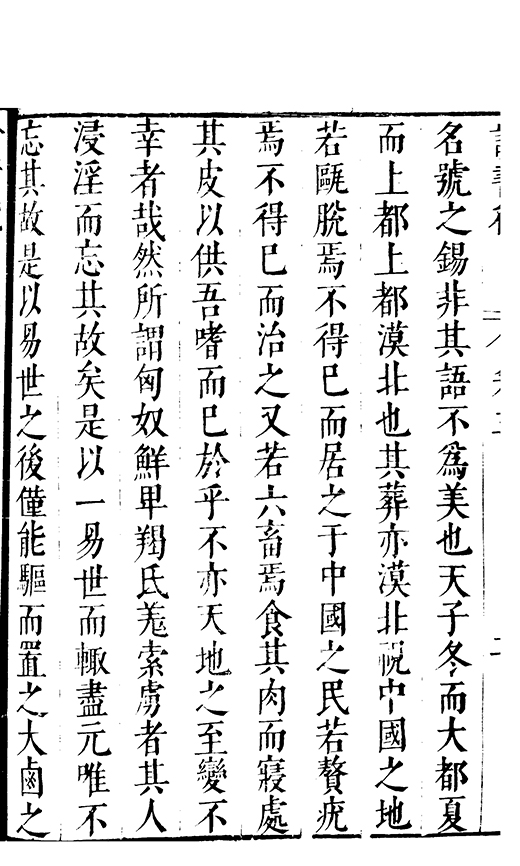 名號之錫非其語不爲美也天子冬而大都夏
而上都上都漠北也其葬亦漠北視中國之地
若甌脫焉不得已而居之于中國之民若贅疣
焉不得已而治之又若六畜焉食其肉而寢處
其皮以供吾嗜而已於乎不亦天地之至變不
幸者哉然所謂匈奴鮮卑羯氐羗索虜者其人
浸淫而忘其故矣是以一易世而輙盡元唯不
忘其故是以易世之後僅能驅而置之大鹵之